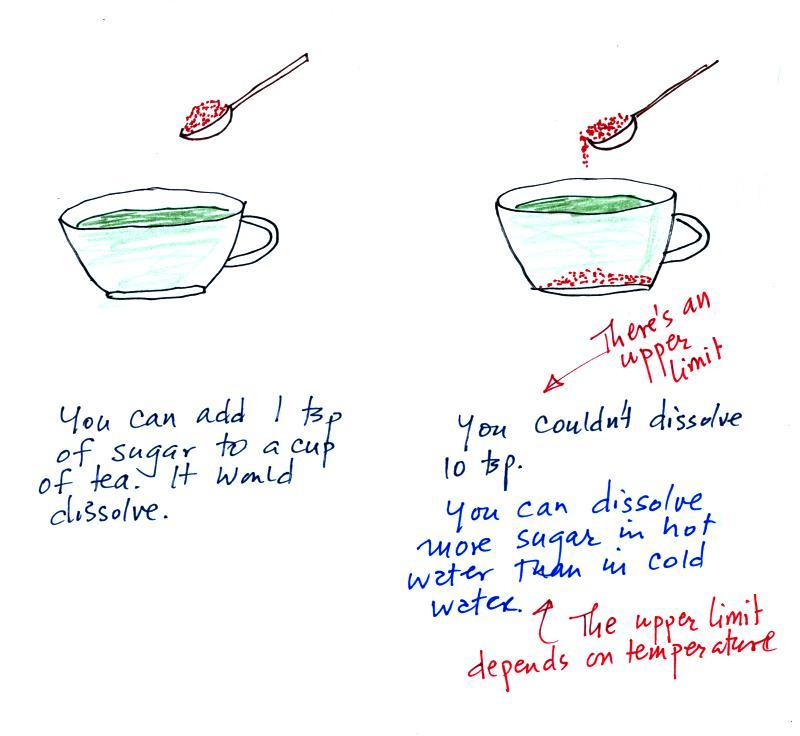 You can add 1 tsp
of sugar to a cup
of tea. It would
dissolve.
There's an
upper
limit
You couldn't dissolve
10 tsp.
You can dissolve
more sugar in hot
water than in cold
water.
The upper limit
depends on temperature